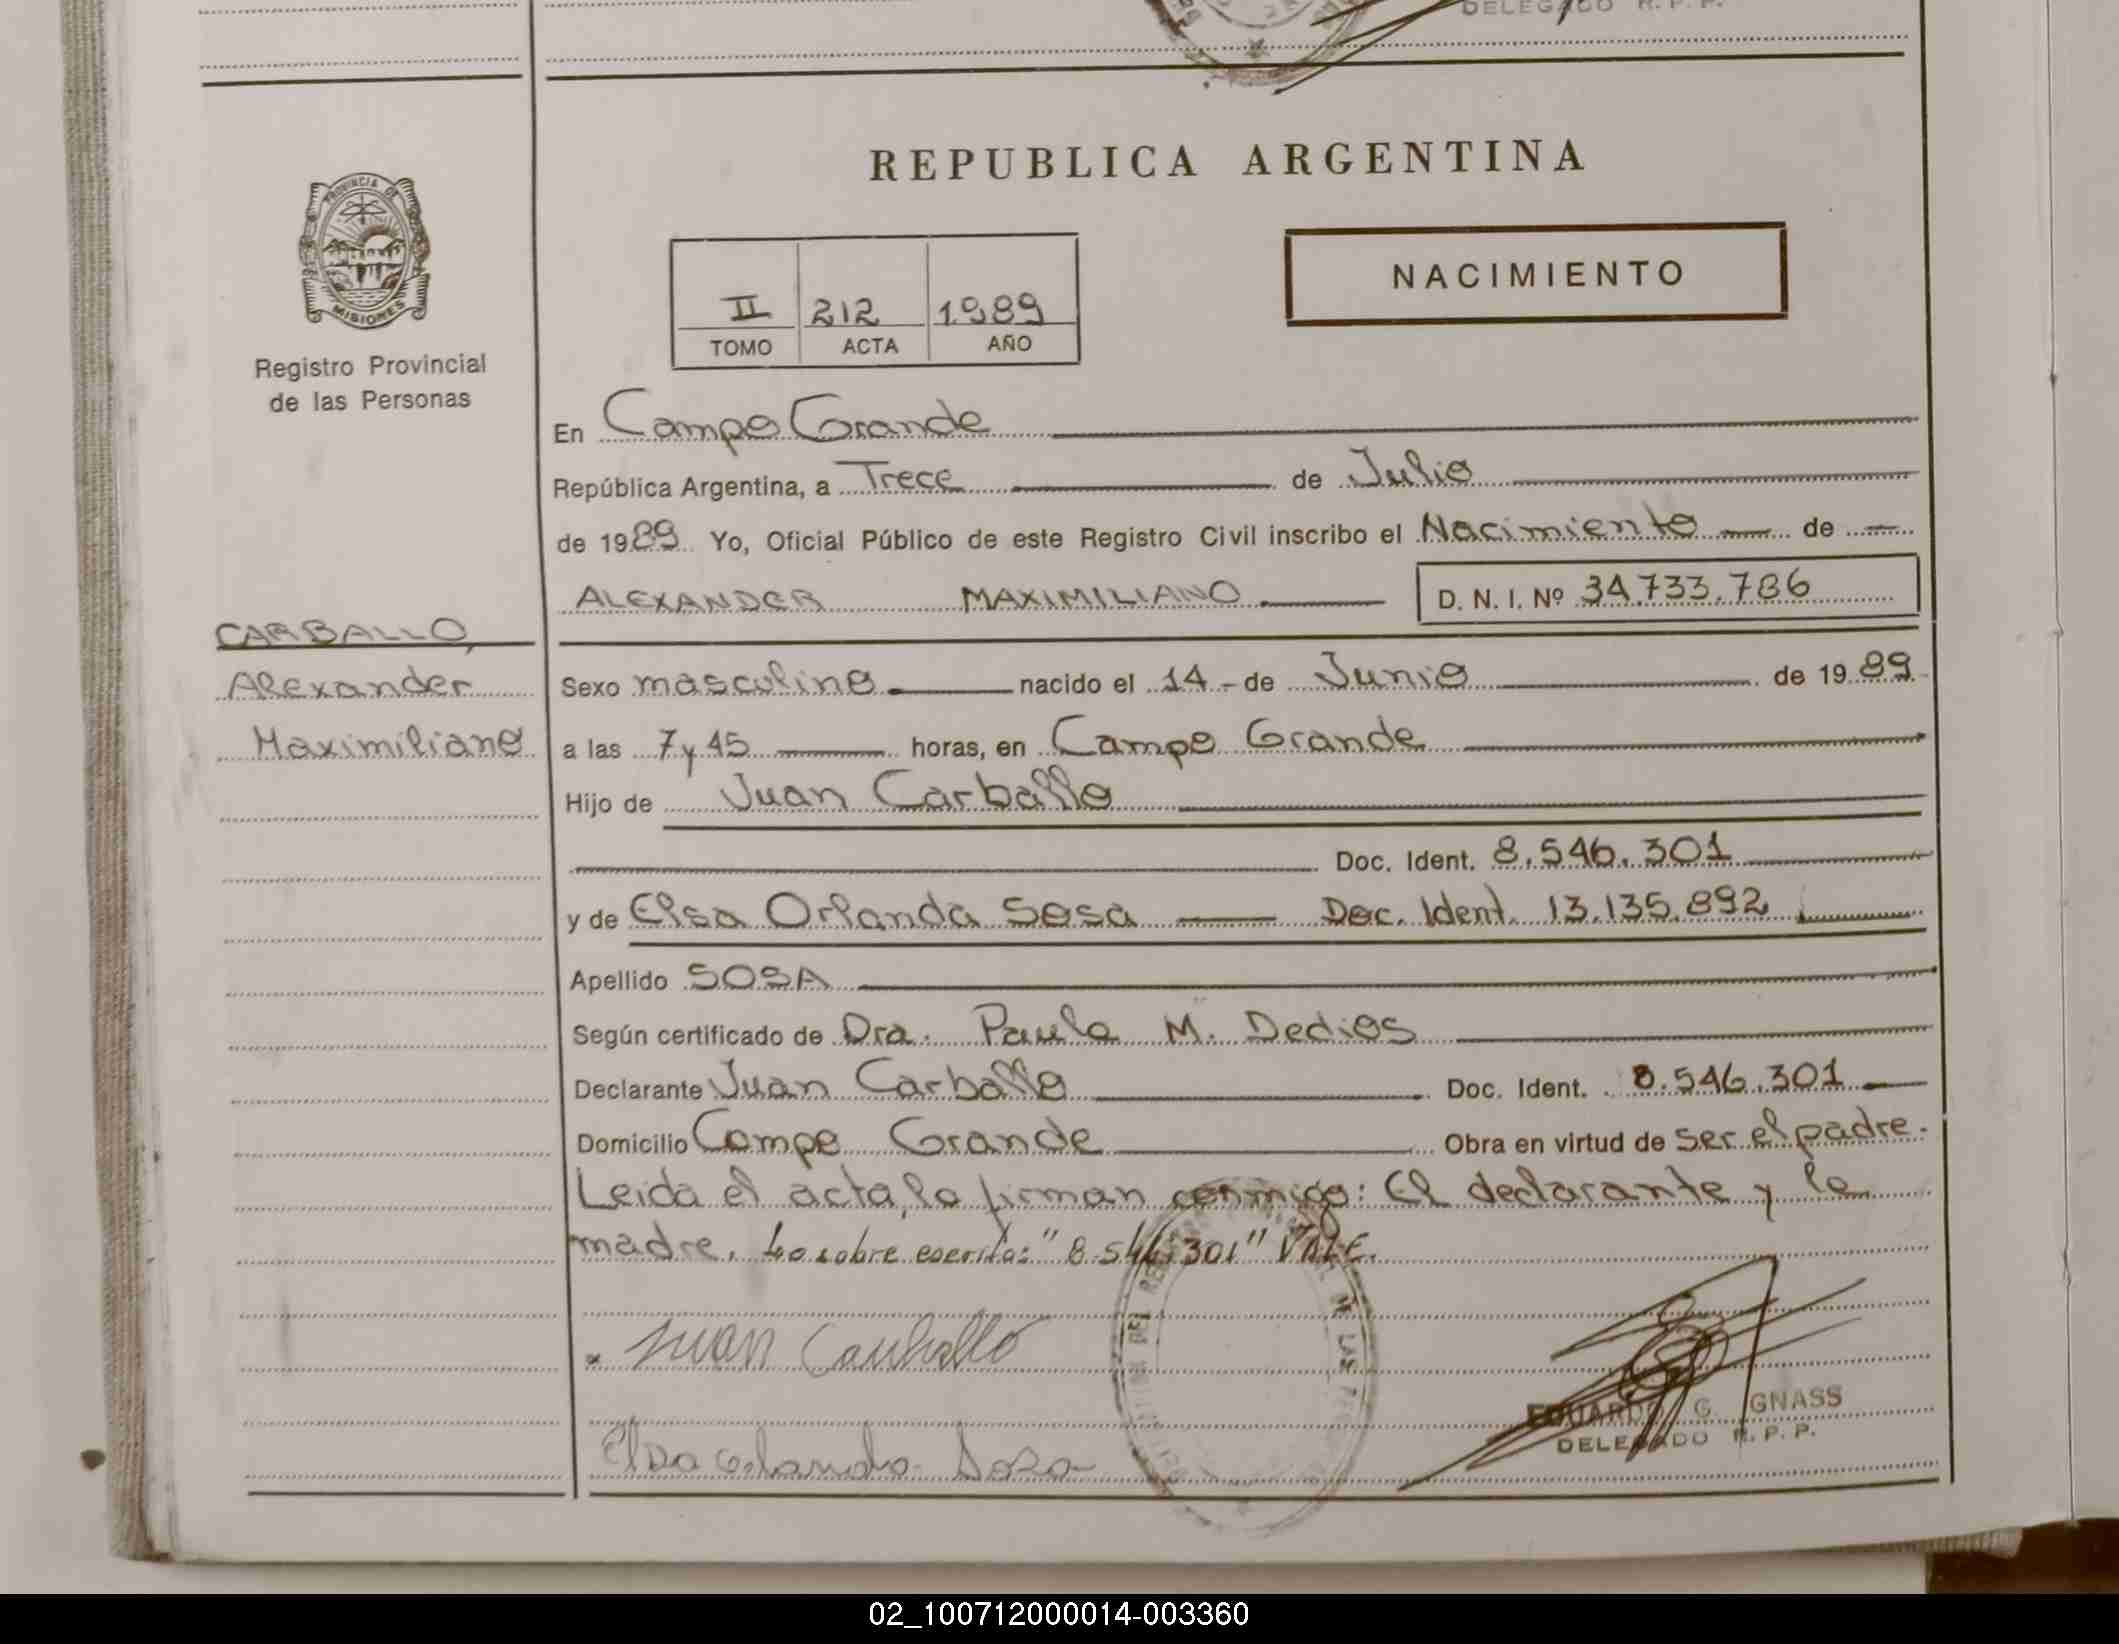 DELEGADO R. P. P.
REPUBLICA ARGENTINA
PROVINCIA DE
MISIONES
Registro Provincial
de las Personas
NACIMIENTO
II 212 1989
TOMO ACTA AÑO
En Campo Grande
República Argentina, a Trece de Julio
de 1989 Yo, Oficial Público de este Registro Civil inscribo el Nacimiento — de —
ALEXANDER MAXIMILIANO D. N. I. Nº 34.733.786
CARBALLO,
Alexander
Maximiliano
Sexo masculino. nacido el 14 - de Junio de 1989
a las 7 y 45 horas, en Campo Grande
Hijo de Juan Carballo
Doc. Ident. 8.546.301
y de Elsa Orlanda Sosa — Doc. Ident. 13.135.892
Apellido SOSA
Según certificado de Dra. Paula M. Dedios
Declarante Juan Carballo Doc. Ident. 8.546.301
Domicilio Campo Grande Obra en virtud de ser el padre.
Leida el acta, la firman conmigo: El declarante y la
madre. Lo sobre escrito: "8.546.301" VALE.
Juan Carballo
EDUARDO G. GNASS
DELEGADO R. P. P.
Elsa Orlanda Sosa
02_100712000014-003360